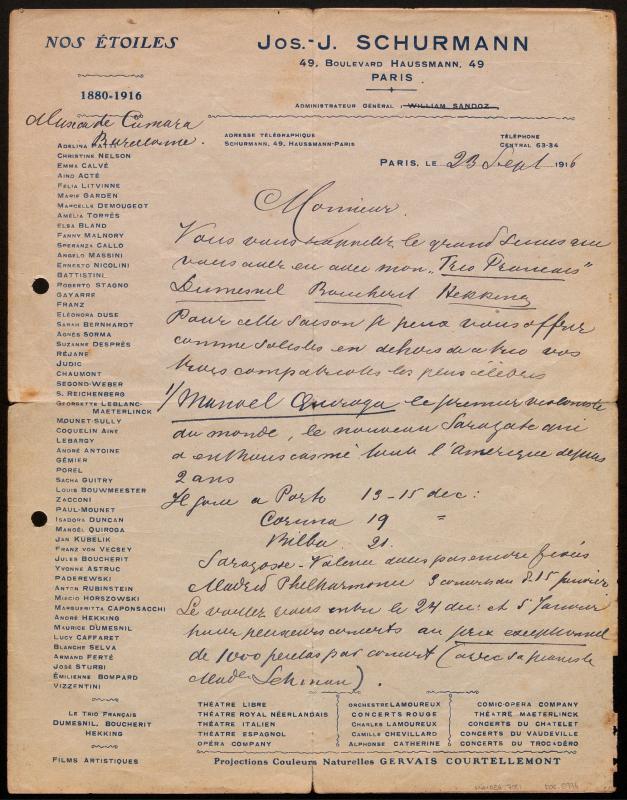 NOS ÉTOILES
1880-1916
JOS.-J. SCHURMANN
49, BOULEVARD HAUSSMANN, 49
PARIS
ADMINISTRATEUR GÉNÉRAL : WILLIAM SANDOZ
ADRESSE TÉLÉGRAPHIQUE
SCHURMANN, 49, HAUSSMANN-PARIS
TÉLÉPHONE
CENTRAL 63-34
Musica de Camara
Barcelone.
PARIS, LE 23 Sept 1916
ADELINA PATTI
CHRISTINE NELSON
EMMA CALVÉ
AINO ACTÉ
FÉLIA LITVINNE
MARIE GARDEN
MARCELLE DEMOUGEOT
AMÉLIA TORRÈS
ELSA BLAND
FANNY MALNORY
SPERANZA CALLO
ANGELO MASSINI
ERNESTO NICOLINI
BATTISTINI
ROBERTO STAGNO
GAYARRE
FRANZ
ELÉONORA DUSE
SARAH BERNHARDT
AGNÈS SORMA
SUZANNE DESPRÈS
RÉJANE
JUDIC
CHAUMONT
SEGOND-WEBER
S. REICHENBERG
GEORGETTE LEBLANC-
MAETERLINCK
MOUNET-SULLY
COQUELIN AINÉ
LEBARGY
ANDRÉ ANTOINE
GÉMIER
POREL
SACHA GUITRY
LOUIS BOUWMEESTER
ZACCONI
PAUL-MOUNET
ISADORA DUNCAN
MANOËL QUIROGA
JAN KUBELIK
FRANZ VON VECSEY
JULES BOUCHERIT
YVONNE ASTRUC
PADEREWSKI
ANTON RUBINSTEIN
MIECIO HORSZOWSKI
MARGUERITTA CAPONSACCHI
ANDRÉ HEKKING
MAURICE DUMESNIL
LUCY CAFFARET
BLANCHE SELVA
ARMAND FERTÉ
JOSÉ STURBI
ÉMILIENNE BOMPARD
VIZZENTINI
LE TRIO FRANÇAIS
DUMESNIL, BOUCHERIT
HEKKING
FILMS ARTISTIQUES
Monsieur.
Vous vous rappelez le grand succes que
vous avez eu avec mon „Trio Francais"
Dumesnil Boucherit Hekking
Pour cette saison je peux vous offrir
comme solistes en dehors de ce trio vos
trois compatriotes les plus célèbres
1/ Manoël Quiroga le premier violoniste
du monde, le nouveau Sarazate qui
a enthousiasmé toute l'Amerique depuis
2 ans
Il joue a Porto 13-15 dec:
Coruna 19 "
Bilbao 21.
Saragosse - Valence dates pas encore fixées
Madrid Philharmonie 3 concerts au 8.15 janvier
Le voulez vous entre le 24 dec: et 5 Janvier
pour plusieurs concerts au prix exceptionnel
de 1000 pesetas par concert (avec sa pianiste
Made Lehman).
THÉATRE LIBRE
THÉATRE ROYAL NÉERLANDAIS
THÉATRE ITALIEN
THÉATRE ESPAGNOL
OPÉRA COMPANY
ORCHESTRE LAMOUREUX
CONCERTS ROUGE
CHARLES LAMOUREUX
CAMILLE CHEVILLARD
ALPHONSE CATHERINE
COMIC-OPERA COMPANY
THÉATRE MAETERLINCK
CONCERTS DU CHATELET
CONCERTS DU VAUDEVILLE
CONCERTS DU TROCADÉRO
Projections Couleurs Naturelles GERVAIS COURTELLEMONT